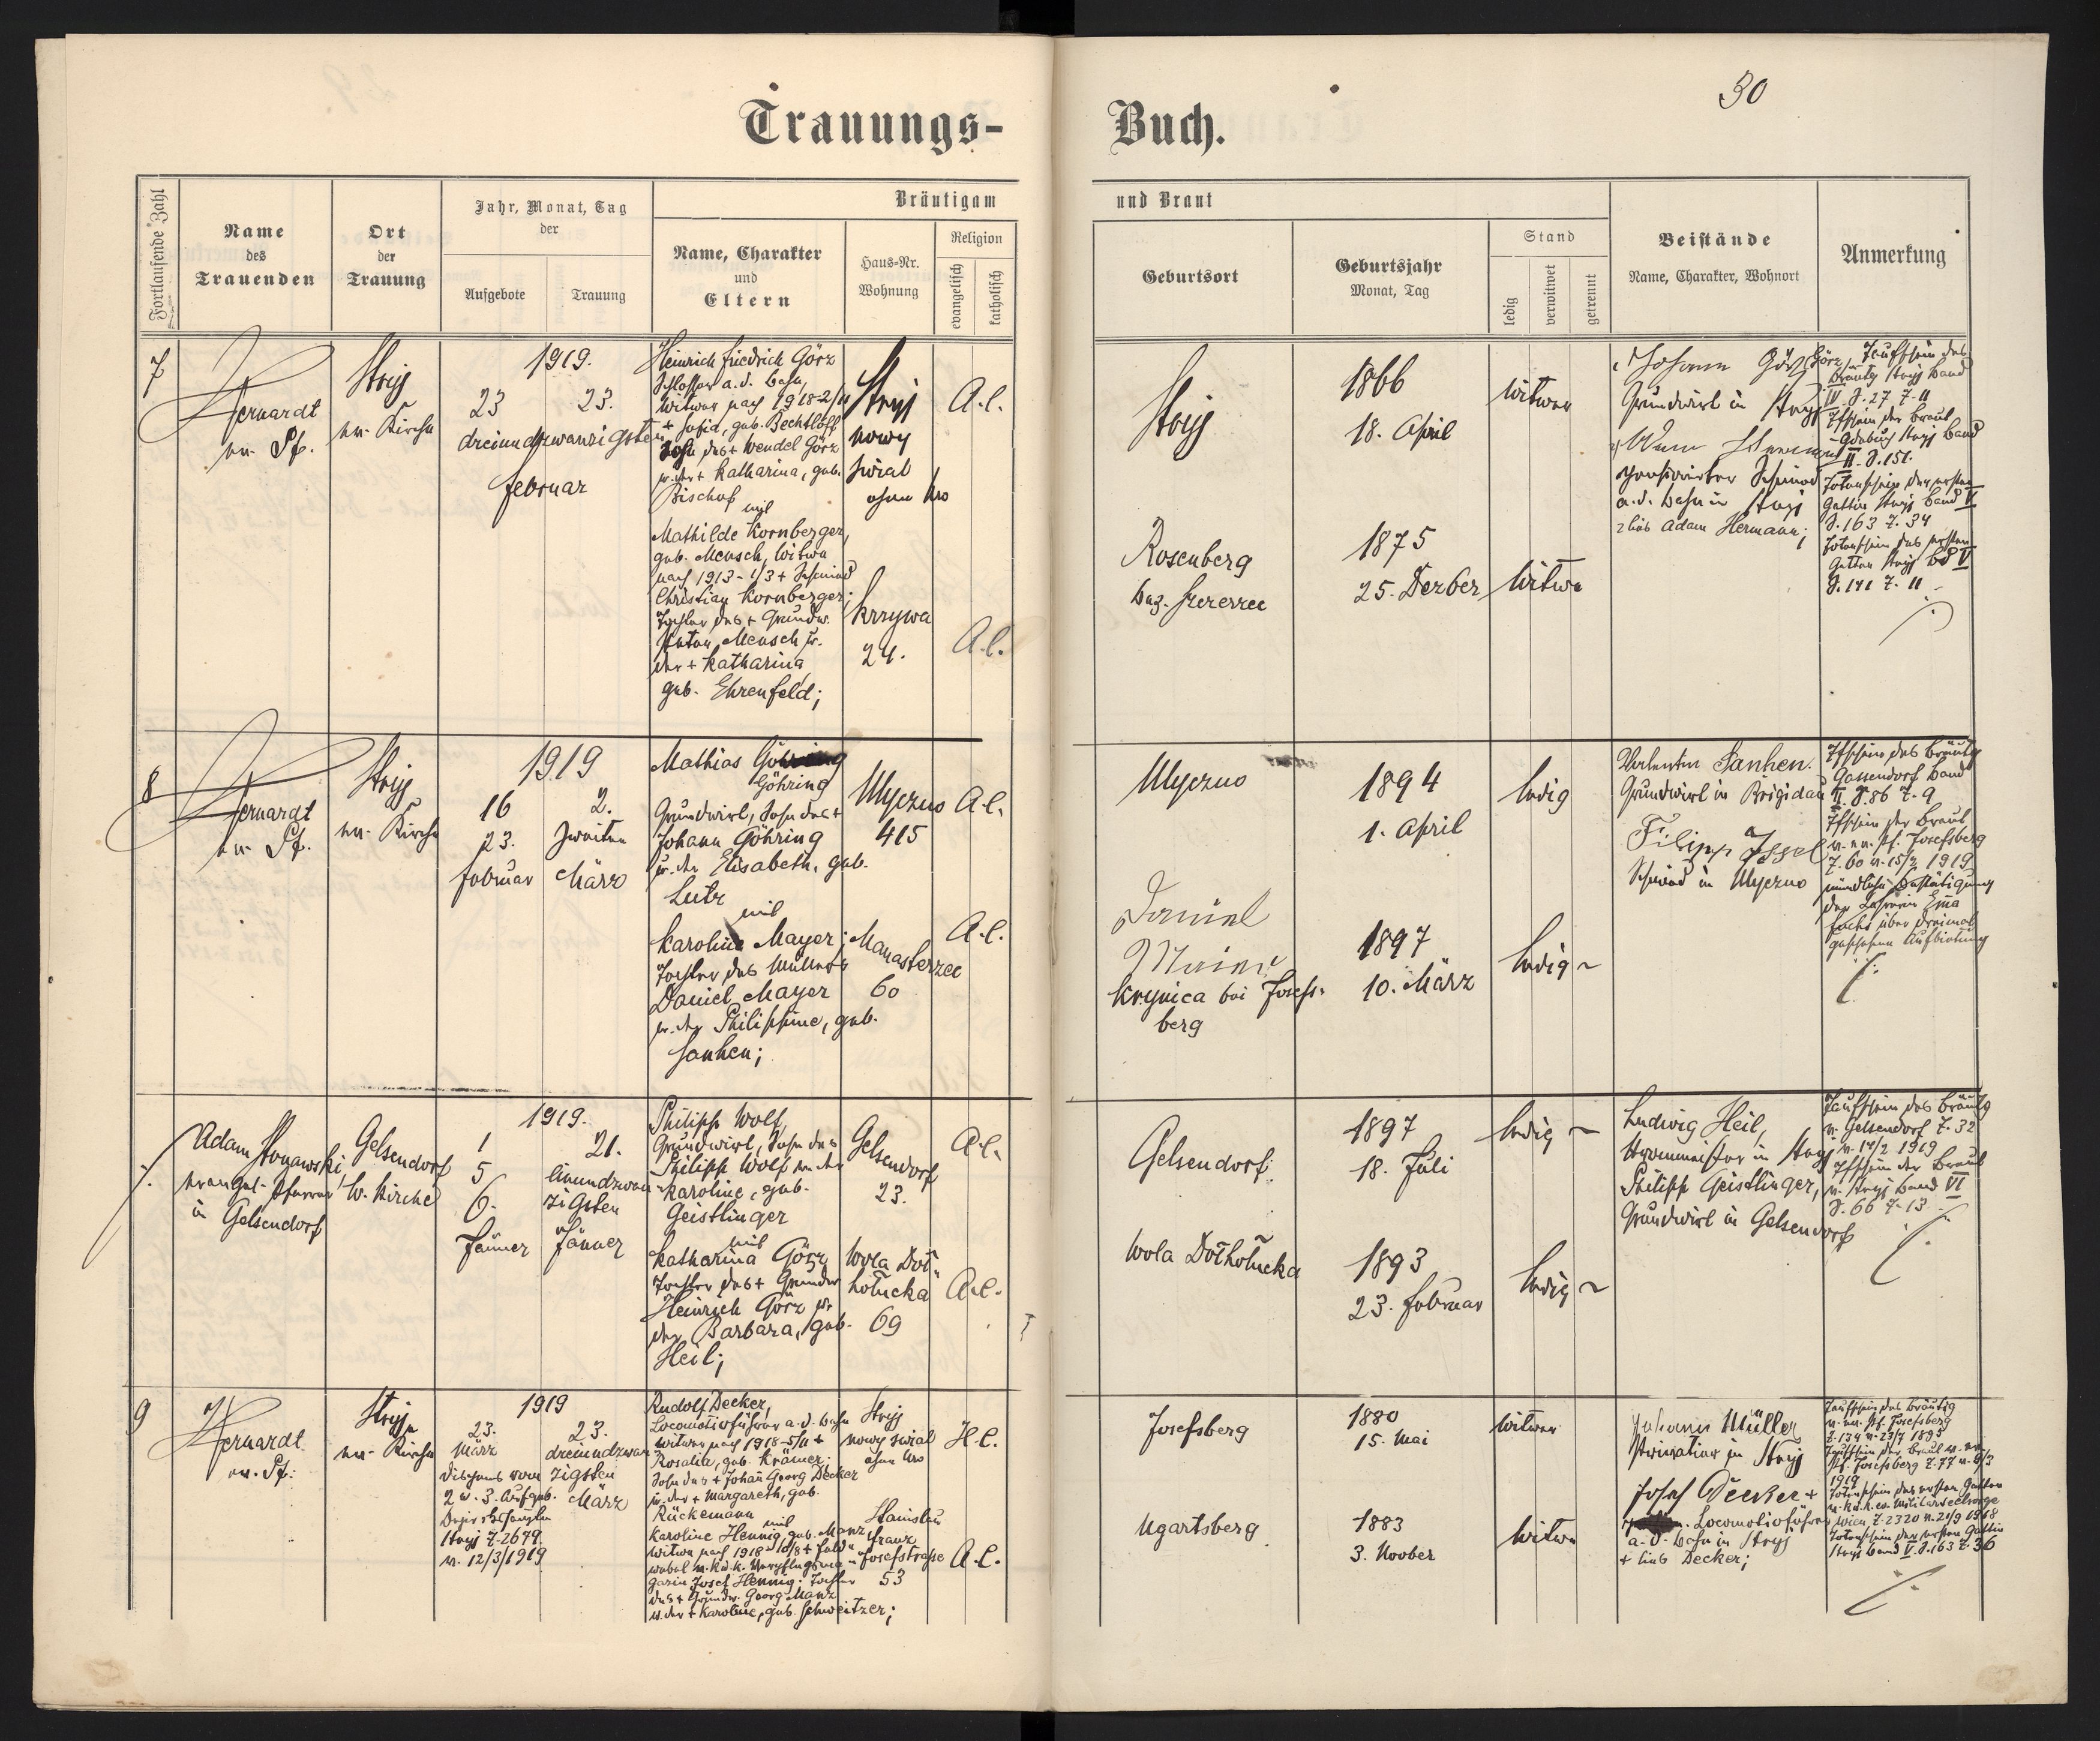 30
Trauungs-
Buch.
Fortlaufende Zahl
Name
des
Trauenden
Ort
der
Trauung
Jahr, Monat, Tag
der
Aufgebote
Trauung
Bräutigam
Name, Charakter
und
Eltern
Haus-Nr.
Wohnung
Religion
evangelisch
katholisch
und Braut
Geburtsort
Geburtsjahr
Monat, Tag
Stand
ledig
verwitwet
getrennt
Beistände
Name, Charakter, Wohnort
Anmerkung
7
Pf.
Stryj
ev. Kirche
1919.
23
23.
dreiundzwanzigsten
Februar
Heinrich Friedrich Görz
Schlosser a. d. Bahn,
Witwer nach 1918-2/11
+ Sofie, geb. Bechtloff
Sohn des + Wendel Görz
u. der + Katharina, geb.
Bischof
mit
Mathilde Kornberger,
geb. Mensch, Witwe
nach 1913-1/3 + Schmied
Christian Kornberger;
Tochter des + Grundw.
Mensch u.
der + Katharina
geb. Ehrenfeld;
Stryj
nowy
świat
ohne Nro
Krzywa
24.
A.C.
A.C.
Stryj
1866
18. April
Witwer
Rosenberg
Bez. Szczerzec
1875
25. Dezber
Witwe
Johann Görz
Grundwirt in Stryj
Schmied
a. d. Bahn in Stryj
Adam Hermann;
Taufschein des
Bräutg Stryj Band
IV S. 27 Z. 11
Tfschein der Braut
Stryj Band
II S. 151.
Totenschein der ersten
Gattin Stryj Band V
S. 163 Z. 34
Totenschein des ersten
Gatten Stryj Bd V
S. 141 Z. 11
8
ev. Pf.
Stryj
ev. Kirche
1919
16
2.
23.
zweiten
Februar
März
Mathias
Göhring
Grundwirt, Sohn des +
Johann Göhring
u. der Elisabeth, geb.
Lutz
mit
Karoline Mayer;
Tochter des Müllers
Daniel Mayer
u. der Philippine, geb.
Janhen;
Ulyczno
415
Manasterzec
60
A.C.
A.C.
Ulyczno
1894
1. April
ledig
Daniel
Krynica bei Josefs-
berg
1897
10. März
ledig
Valentin Janhen.
Grundwirt in Brigidau
Filipp
Schmied in Ulyczno
Tfschein des Bräutg
Gassendorf Band
II S. 86 Z. 9
Tfschein der Braut
v. ev. Pf. Josefsberg
Z. 60 v. 15/2 1919
mündliche Bestätigung
der Lehrerin Ema
Fuchs über dreimal
geschehene Aufbietung
Adam Stonawski,
evangel. Pfarrer
in Gelsendorf
Gelsendorf
ev. Kirche
1919.
1
21.
5
einundzwan-
6.
zigsten
Jänner
Jänner
Philipp Wolf,
Grundwirt, Sohn des
Philipp Wolf u. der
Karoline, geb.
Geistlinger
mit
Katharina Görz
Tochter des + Grundw.
Heinrich Görz u.
der Barbara, geb.
Heil;
Gelsendorf
23.
Wola Doł-
hołucka
69
A.C.
A.C.
Gelsendorf
1897
18. Juli
ledig
Wola Dołhołucka
1893
23. Februar
ledig
Ludwig Heil,
in Stryj
Philipp Geistlinger,
Grundwirt in Gelsendorf
Taufschein des Bräutg
v. Gelsendorf Z. 32
v. 14/2 1919
Tfschein der Braut
v. Stryj Band VI
S. 66 Z. 13
9
ev. Pf.
Stryj
ev. Kirche
1919
23.
23.
März
dreiundzwan-
Dispens vom
zigsten
2 u. 3. Aufgeb.
März
Stryj Z. 2679
v. 12/3/1919
Rudolf Decker,
Locomotivführer a. d. Bahn
Witwer nach 1918-5/11 +
Rosalia, geb. Krämer;
Sohn des + Johañ Georg Decker
u. der + Margareth, geb.
Rückemann
mit
Karoline Hennig, geb. Manz
Witwe nach 1918 10/8 + Feld-
webel v. k.u.k. Verpflegsma-
gazin Josef Hennig; Tochter
des + Grundw. Georg Manz
u. der + Karoline, geb. Schweitzer;
Stryj
nowy świat
ohne Nro
Stanislau
Franz
Josefstraße
53
H.C.
A.C.
Josefsberg
1880
15. Mai
Witwer
Ugartsberg
1883
3. Novber
Witwe
Johann Müller
Privatier in Stryj
Josef Decker +
Locomotivführer
a. d. Bahn in Stryj
+ lies Decker;
Taufschein des Bräutg
v. ev. Pf. Josefsberg
Z. 134 v. 23/7 1895
Taufschein der Braut v. ev.
Pf. Josefsberg Z. 77 v. 9/3
1919
Totenschein des ersten Gatten
v. k.u.k. ev. Militärseelsorge
Wien Z. 2320 v. 21/9 1918
Totenschein der ersten Gattin
Stryj Band V S. 163 Z. 36